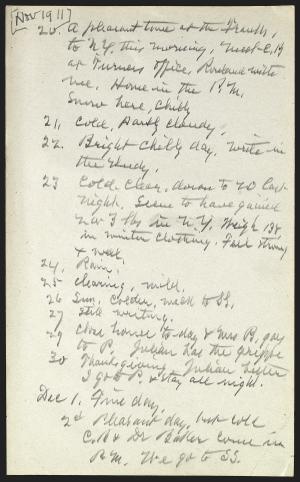 [Nov 1911]
20. A pleasant time at the Frenchs,
to N.Y. this morning, meet C.B.
at Turners office, Roland with
me. Home in the P.M.
Snow here, chilly
21, Cold, partly cloudy,
22. Bright chilly day. Write in
the Study.
23 Cold. Clear, down to 20 last
night. Seem to have gained
2 or 3 lbs in N.Y. Weigh 138
in winter clothing. Feel strong
& well
24. Rain.
25 clearing, mild.
26 Sun, colder, walk to SS.
27 Still writing.
29 Close house to-day & Mrs B. goes
to P. Julian has the grippe
30 Thanksgiving. Julian better
I go to P. & stay all night.
Dec 1. Fine day,
2d Pleasant day, but cold
C.B & Dr Baker come in
P.M. We go to SS.